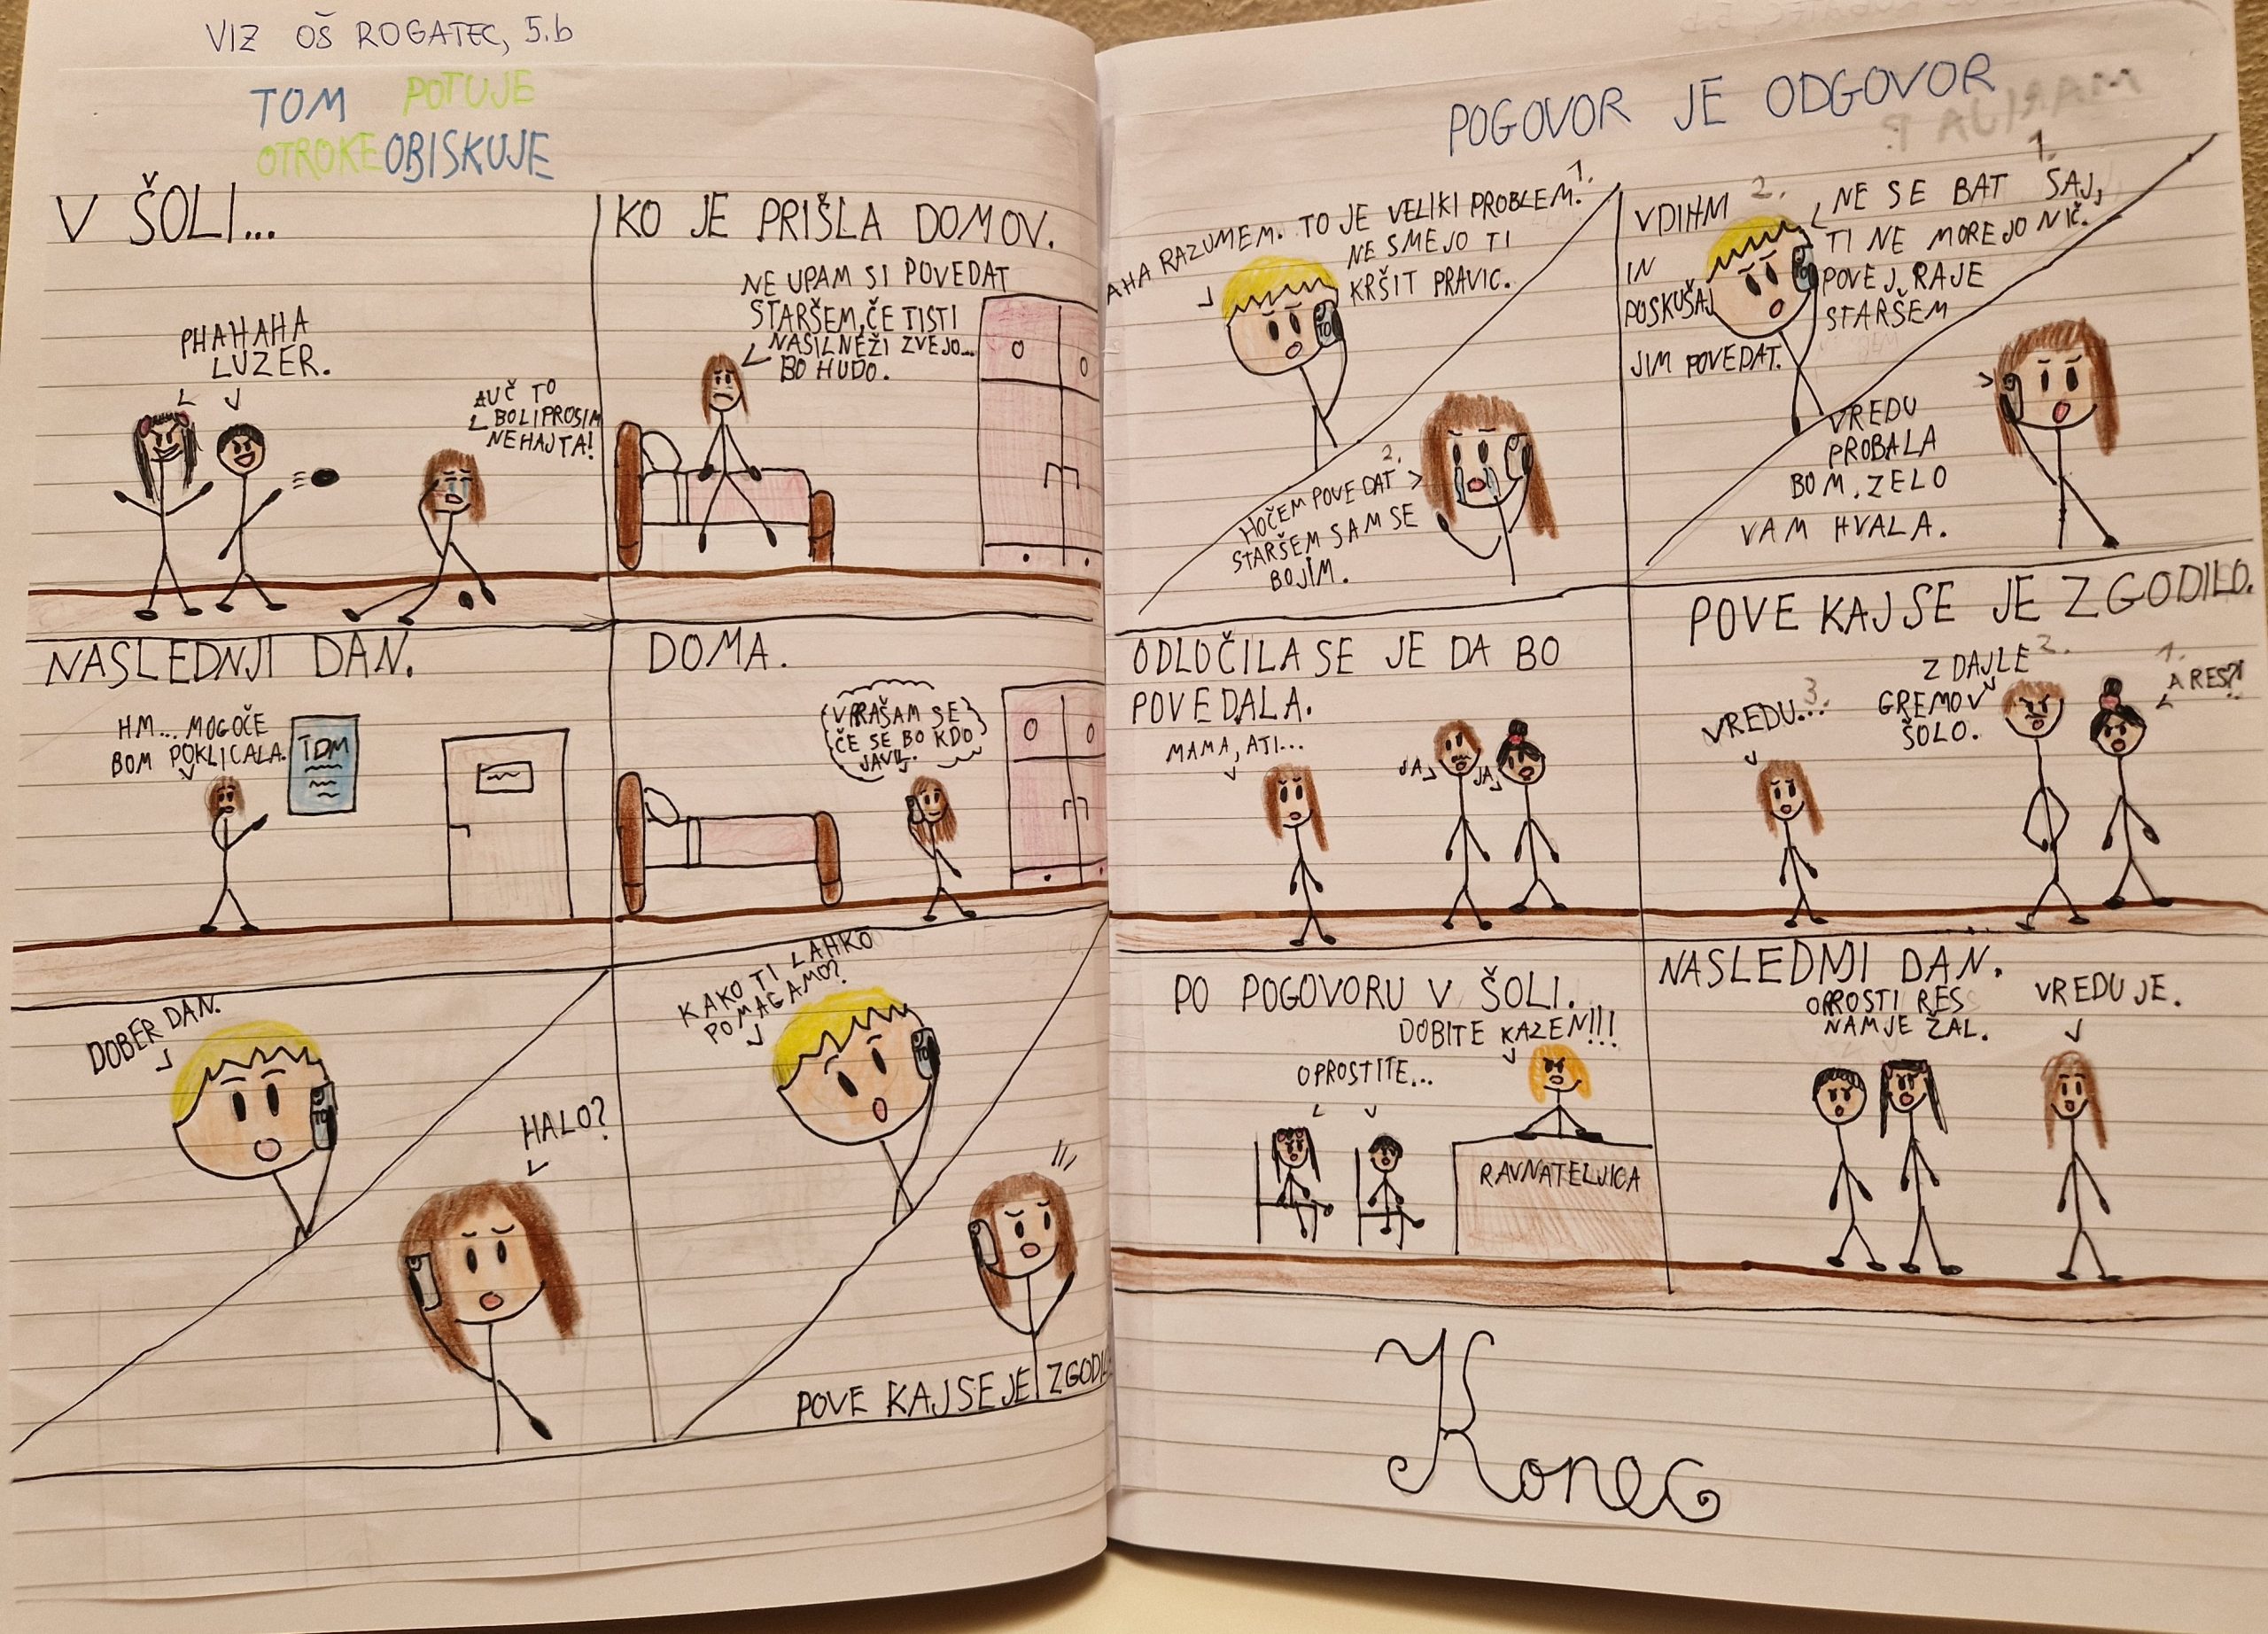 VIZ OŠ ROGATEC, 5.b
TOM POTUJE
OTROKE OBISKUJE
V ŠOLI...
PHAHAHA
LUZER.
AUČ TO
BOLI PROSIM
NEHAJTA!
KO JE PRIŠLA DOMOV.
NE UPAM SI POVEDAT
STARŠEM, ČE TISTI
NASILNEŽI ZVEJO...
BO HUDO.
NASLEDNJI DAN.
HM... MOGOČE
BOM POKLICALA.
TOM
DOMA.
VPRAŠAM SE
ČE SE BO KDO
JAVIL.
DOBER DAN.
HALO?
KAKO TI LAHKO
POMAGAMO?
POVE KAJ SE JE
POGOVOR JE ODGOVOR
1.
AHA RAZUMEM. TO JE VELIKI PROBLEM.
NE SMEJO TI
KRŠIT PRAVIC.
2.
HOČEM POVEDAT
STARŠEM SAM SE
BOJIM.
1.
NE SE BAT SAJ,
TI NE MOREJO NIČ.
POVEJ RAJE
STARŠEM
2.
VDIHM
IN
POSKUŠAJ
JIM POVEDAT.
VREDU
PROBALA
BOM, ZELO
VAM HVALA.
ODLOČILA SE JE DA BO
POVEDALA.
MAMA, ATI...
JA
JA
POVE KAJ SE JE ZGODILO.
1.
A RES?!
2.
ZDAJLE
GREMO V
ŠOLO.
3.
VREDU...
PO POGOVORU V ŠOLI.
DOBITE KAZEN!!!
OPROSTITE...
RAVNATELJICA
NASLEDNJI DAN.
OPROSTI RES
NAM JE ŽAL.
VREDU JE.
Konec